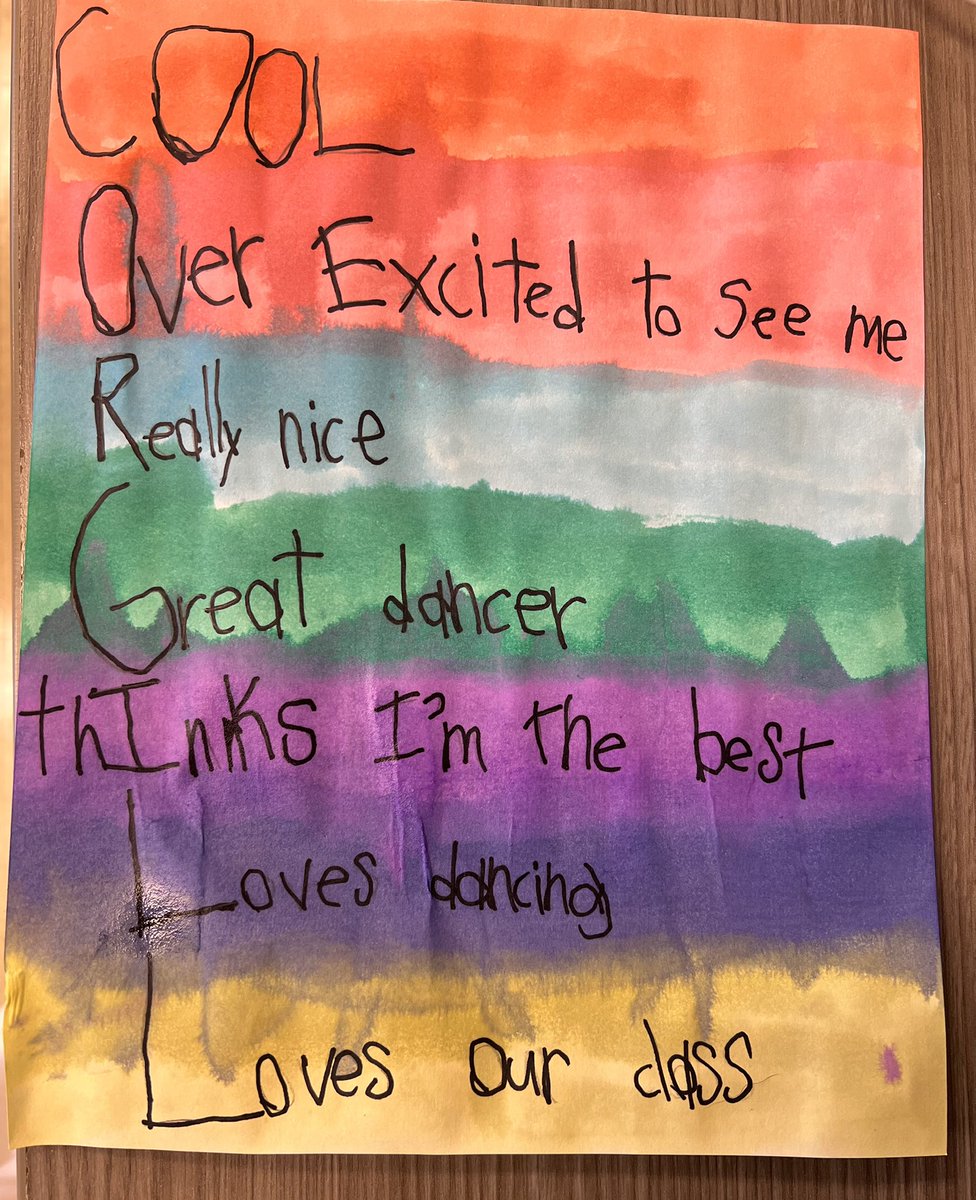 COOL
Over Excited to see me
Really nice
Great dancer
thInks I'm the best
Loves dancing
Loves our class